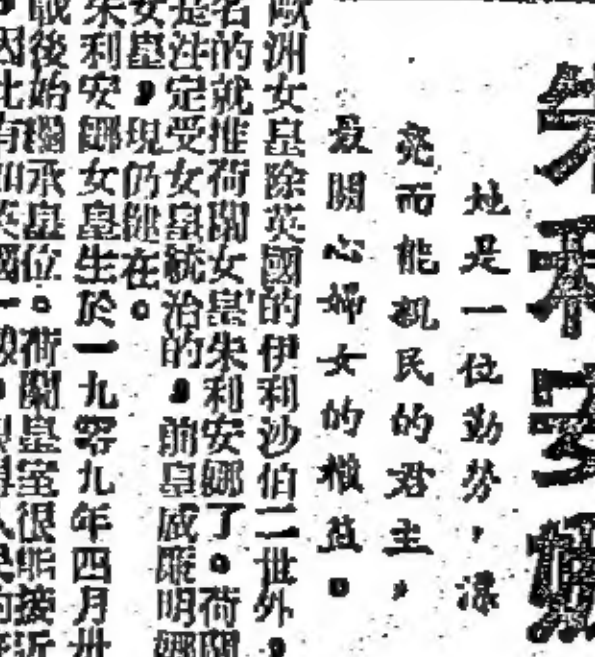 朱利安娜
她是一位勤勞,漂
亮而能親民的君主,
最關心婦女的權益。
歐洲女皇除英國的伊利沙伯二世外,
名的就推荷蘭女皇朱利安娜了。荷蘭
是注定受女皇統治的,前皇威廉明娜
女皇,現仍健在。
朱利安娜女皇生於一九零九年四月卅
戰後始繼承皇位。荷蘭皇室很能接近
因此有如英國一般